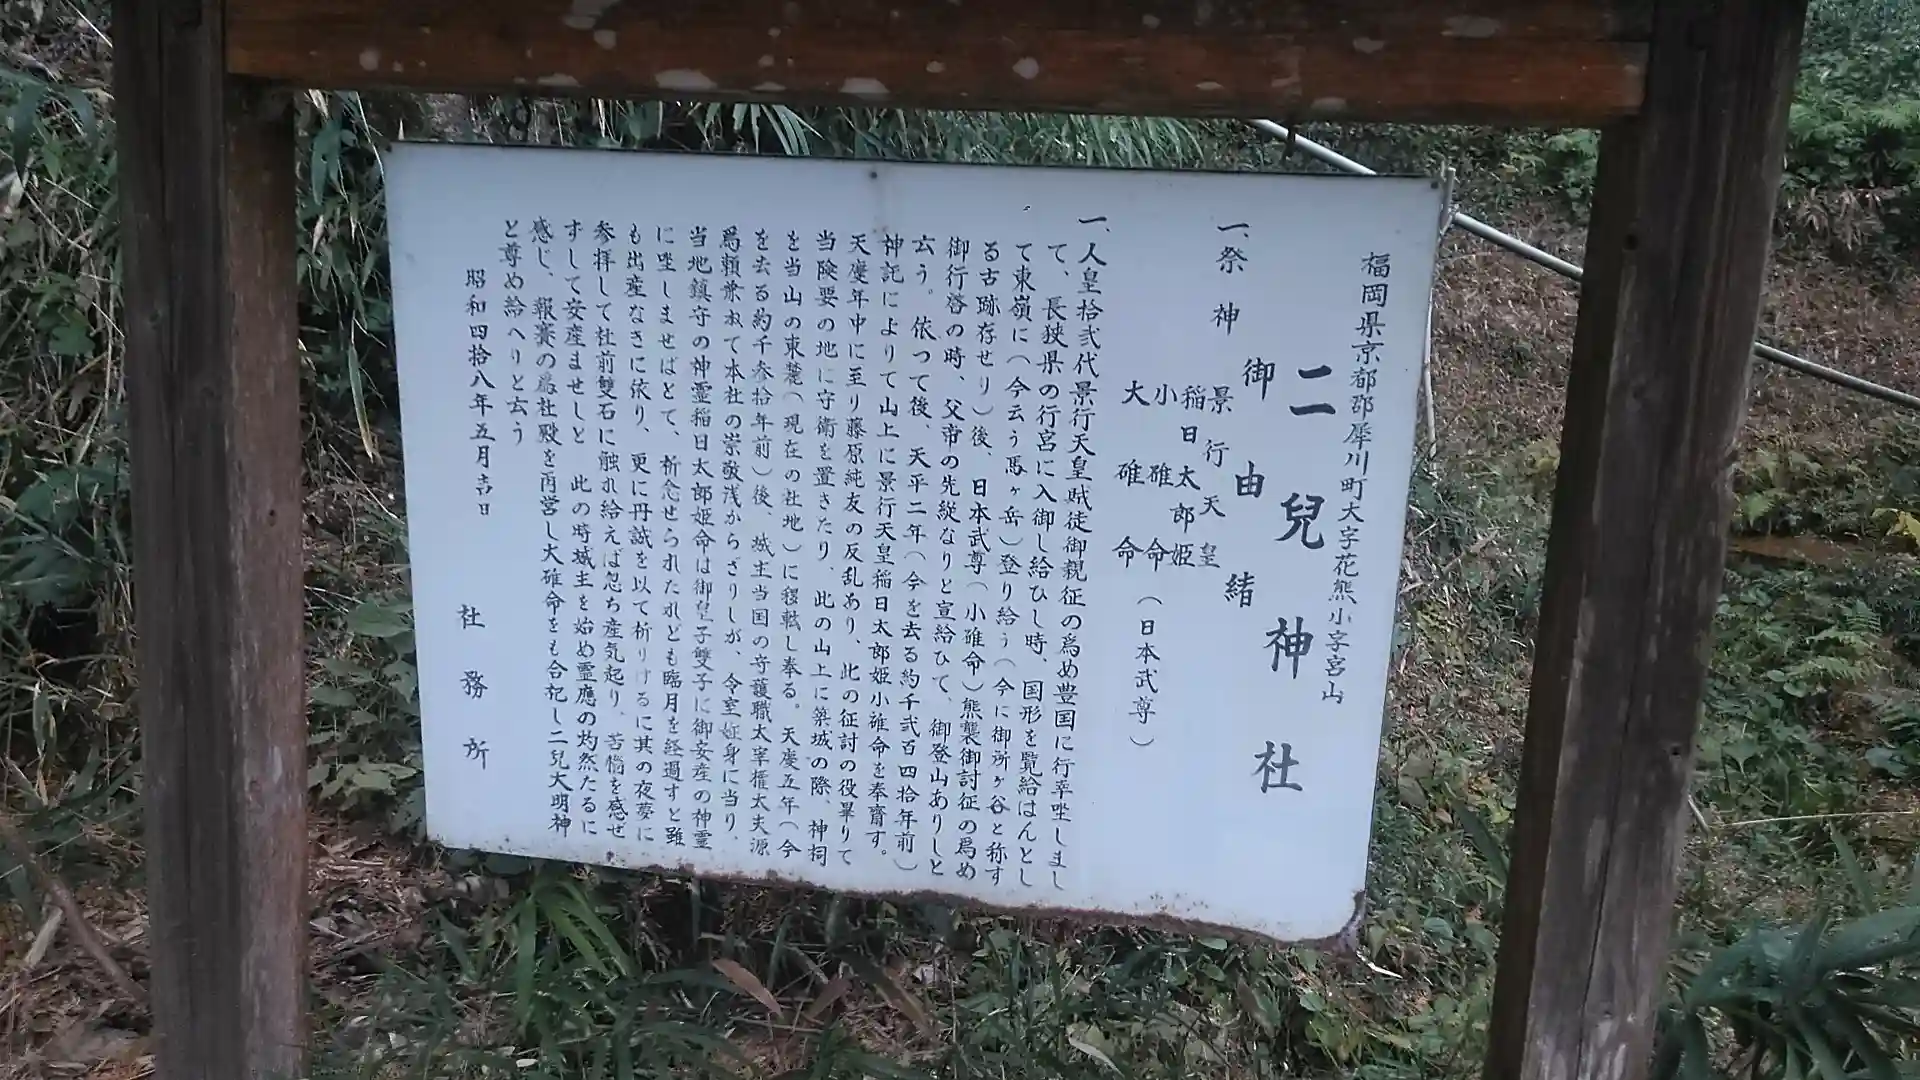 福岡県京都郡犀川町大字花熊小字宮山
二兒神社
御由緒
一、祭神
景行天皇
稲日太郎姫
小碓命(日本武尊)
大碓命
一、人皇拾弐代景行天皇賊徒御親征の為め豊国に行幸坐しまし
て、長狭県の行宮に入御し給ひし時、国形を覧給はんとし
て東嶺に(今云う馬ヶ岳)登り給う(今に御所ヶ谷と称す
る古跡存せり)後、日本武尊(小碓命)熊襲御討征の為め
御行啓の時、父帝の先縦なりと宣給ひて、御登山ありしと
云う。依つて後、天平二年(今を去る約千弐百四拾年前)
神託によりて山上に景行天皇稲日太郎姫小碓命を奉齋す。
天慶年中に至り藤原純友の反乱あり、此の征討の役畢りて
当険要の地に守衛を置きたり、此の山上に築城の際、神祠
を当山の東麓(現在の社地)に移転し奉る。天慶五年(今
を去る約千参拾年前)後、城主当国の守護職太宰権太夫源
為頼兼ねて本社の崇敬浅からざりしが、令室妊身に当り、
当地鎮守の神霊稲日太郎姫命は御皇子雙子に御安産の神霊
に坐しませばとて、祈念せられたれども臨月を経過すと雖
も出産なきに依り、更に丹誠を以て祈りけるに其の夜夢に
参拝して社前雙石に触れ給えば忽ち産気起り、苦悩を感ぜ
ずして安産ませしと 此の時城主を始め霊應の灼然たるに
感じ、報賽の為社殿を再営し大碓命をも合祀し二兒大明神
と尊め給へりと云う
昭和四拾八年五月吉日
社務所